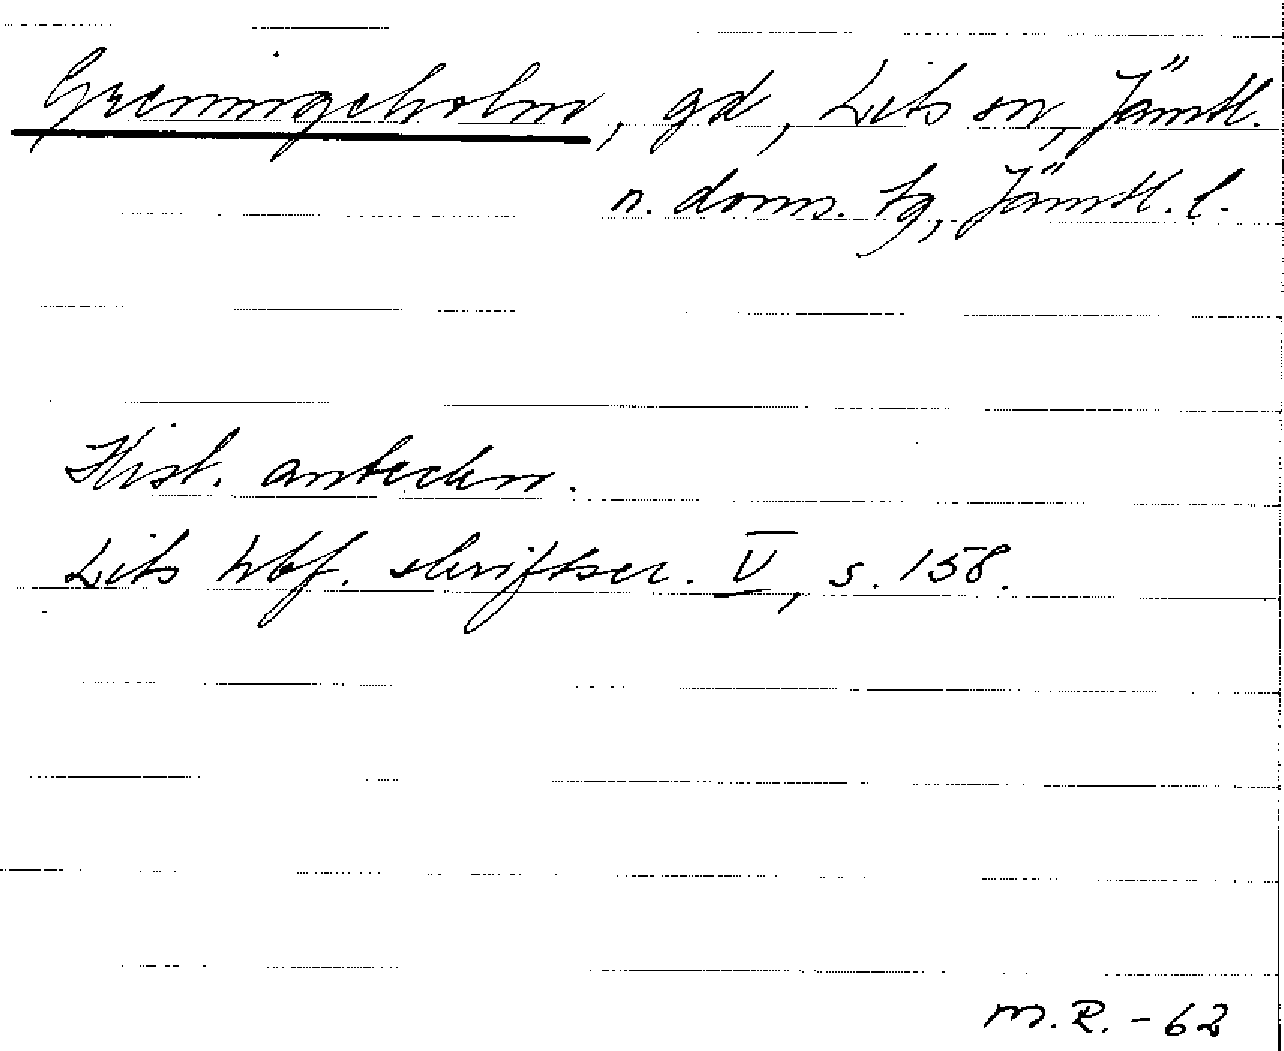 Greningeholm, gd, Lits sn, Jämtl.
n. doms. tg, Jämtl. l.
Hist. anteckn.
Lits hbf. skriftser. V, s. 158.
M.R. - 62